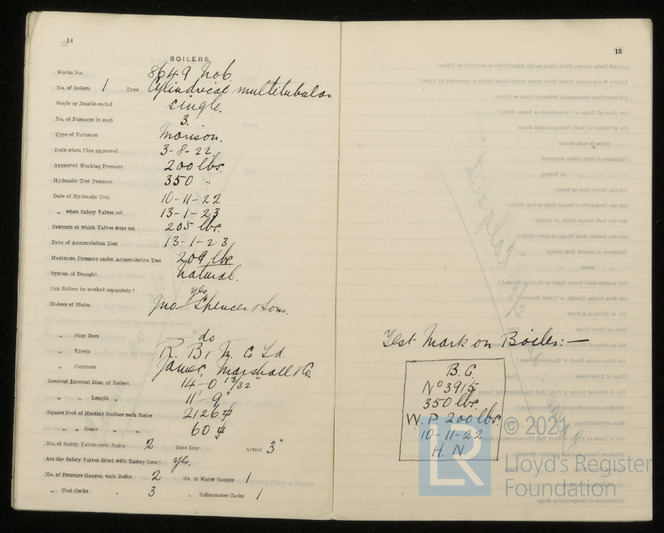 14
BOILERS.
Works No. 8649 No6
No. of Boilers 1 Type Cylindrical multitubular
Single or Double-ended single.
No. of Furnaces in each 3.
Type of Furnaces Morison.
Date when Plan approved 3-8-22
Approved Working Pressure 200 lbs.
Hydraulic Test Pressure 350 "
Date of Hydraulic Test 10-11-22
„ when Safety Valves set 13-1-23
Pressure at which Valves were set 205 lbs.
Date of Accumulation Test 13-1-23
Maximum Pressure under Accumulation Test 209 lbs.
System of Draught natural.
Can Boilers be worked separately? yes
Makers of Plates Jno Spencer & Sons.
„ Stay Bars do
„ Rivets R. B. & N. Co Ld.
„ Furnaces James, Marshall & Co
Greatest Internal Diam. of Boilers 14-0 13/32"
„ „ Length „ 11' 9"
Square Feet of Heating Surface each Boiler 2126
„ „ Grate „ „ 60
No. of Safety Valves each Boiler 2 Rule Diam. Actual 3"
Are the Safety Valves fitted with Easing Gear? yes.
No. of Pressure Gauges, each Boiler 2 No. of Water Gauges 1
„ Test Cocks „ 3 „ Salinometer Cocks 1
15
Test Mark on Boiler:—
B.C.
No 3915
350 lbs.
W.P 200 lbs.
10-11-22
H. N.
LR
© 2021
Lloyd's Register
Foundation